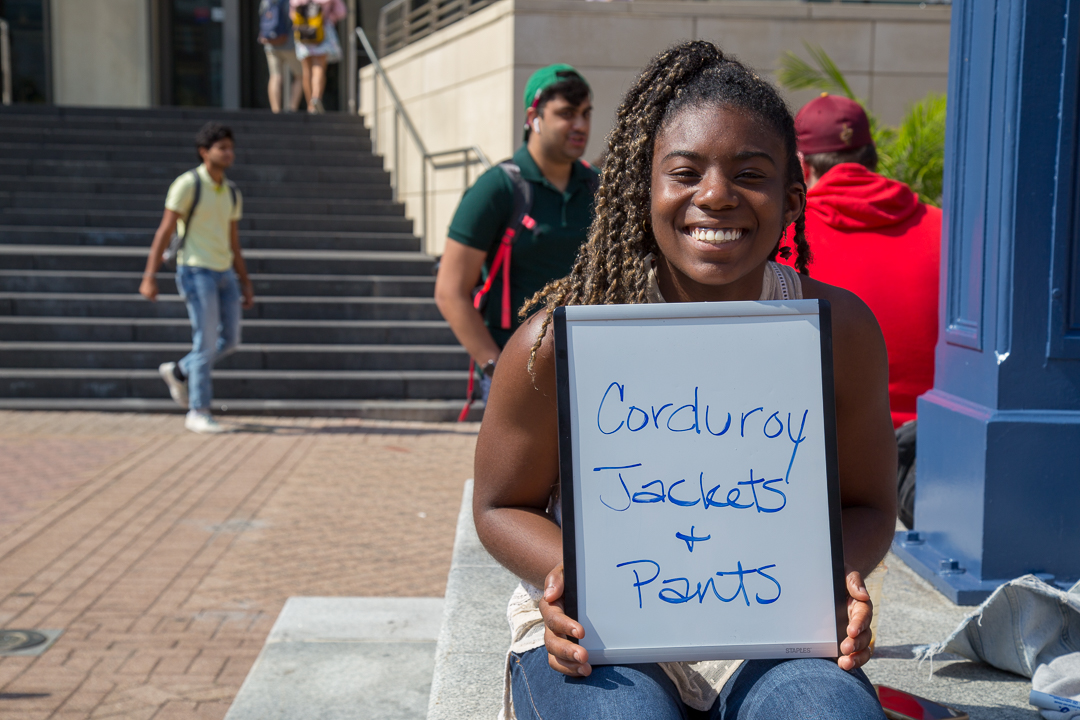 Corduroy
Jackets
+
Pants
STAPLES